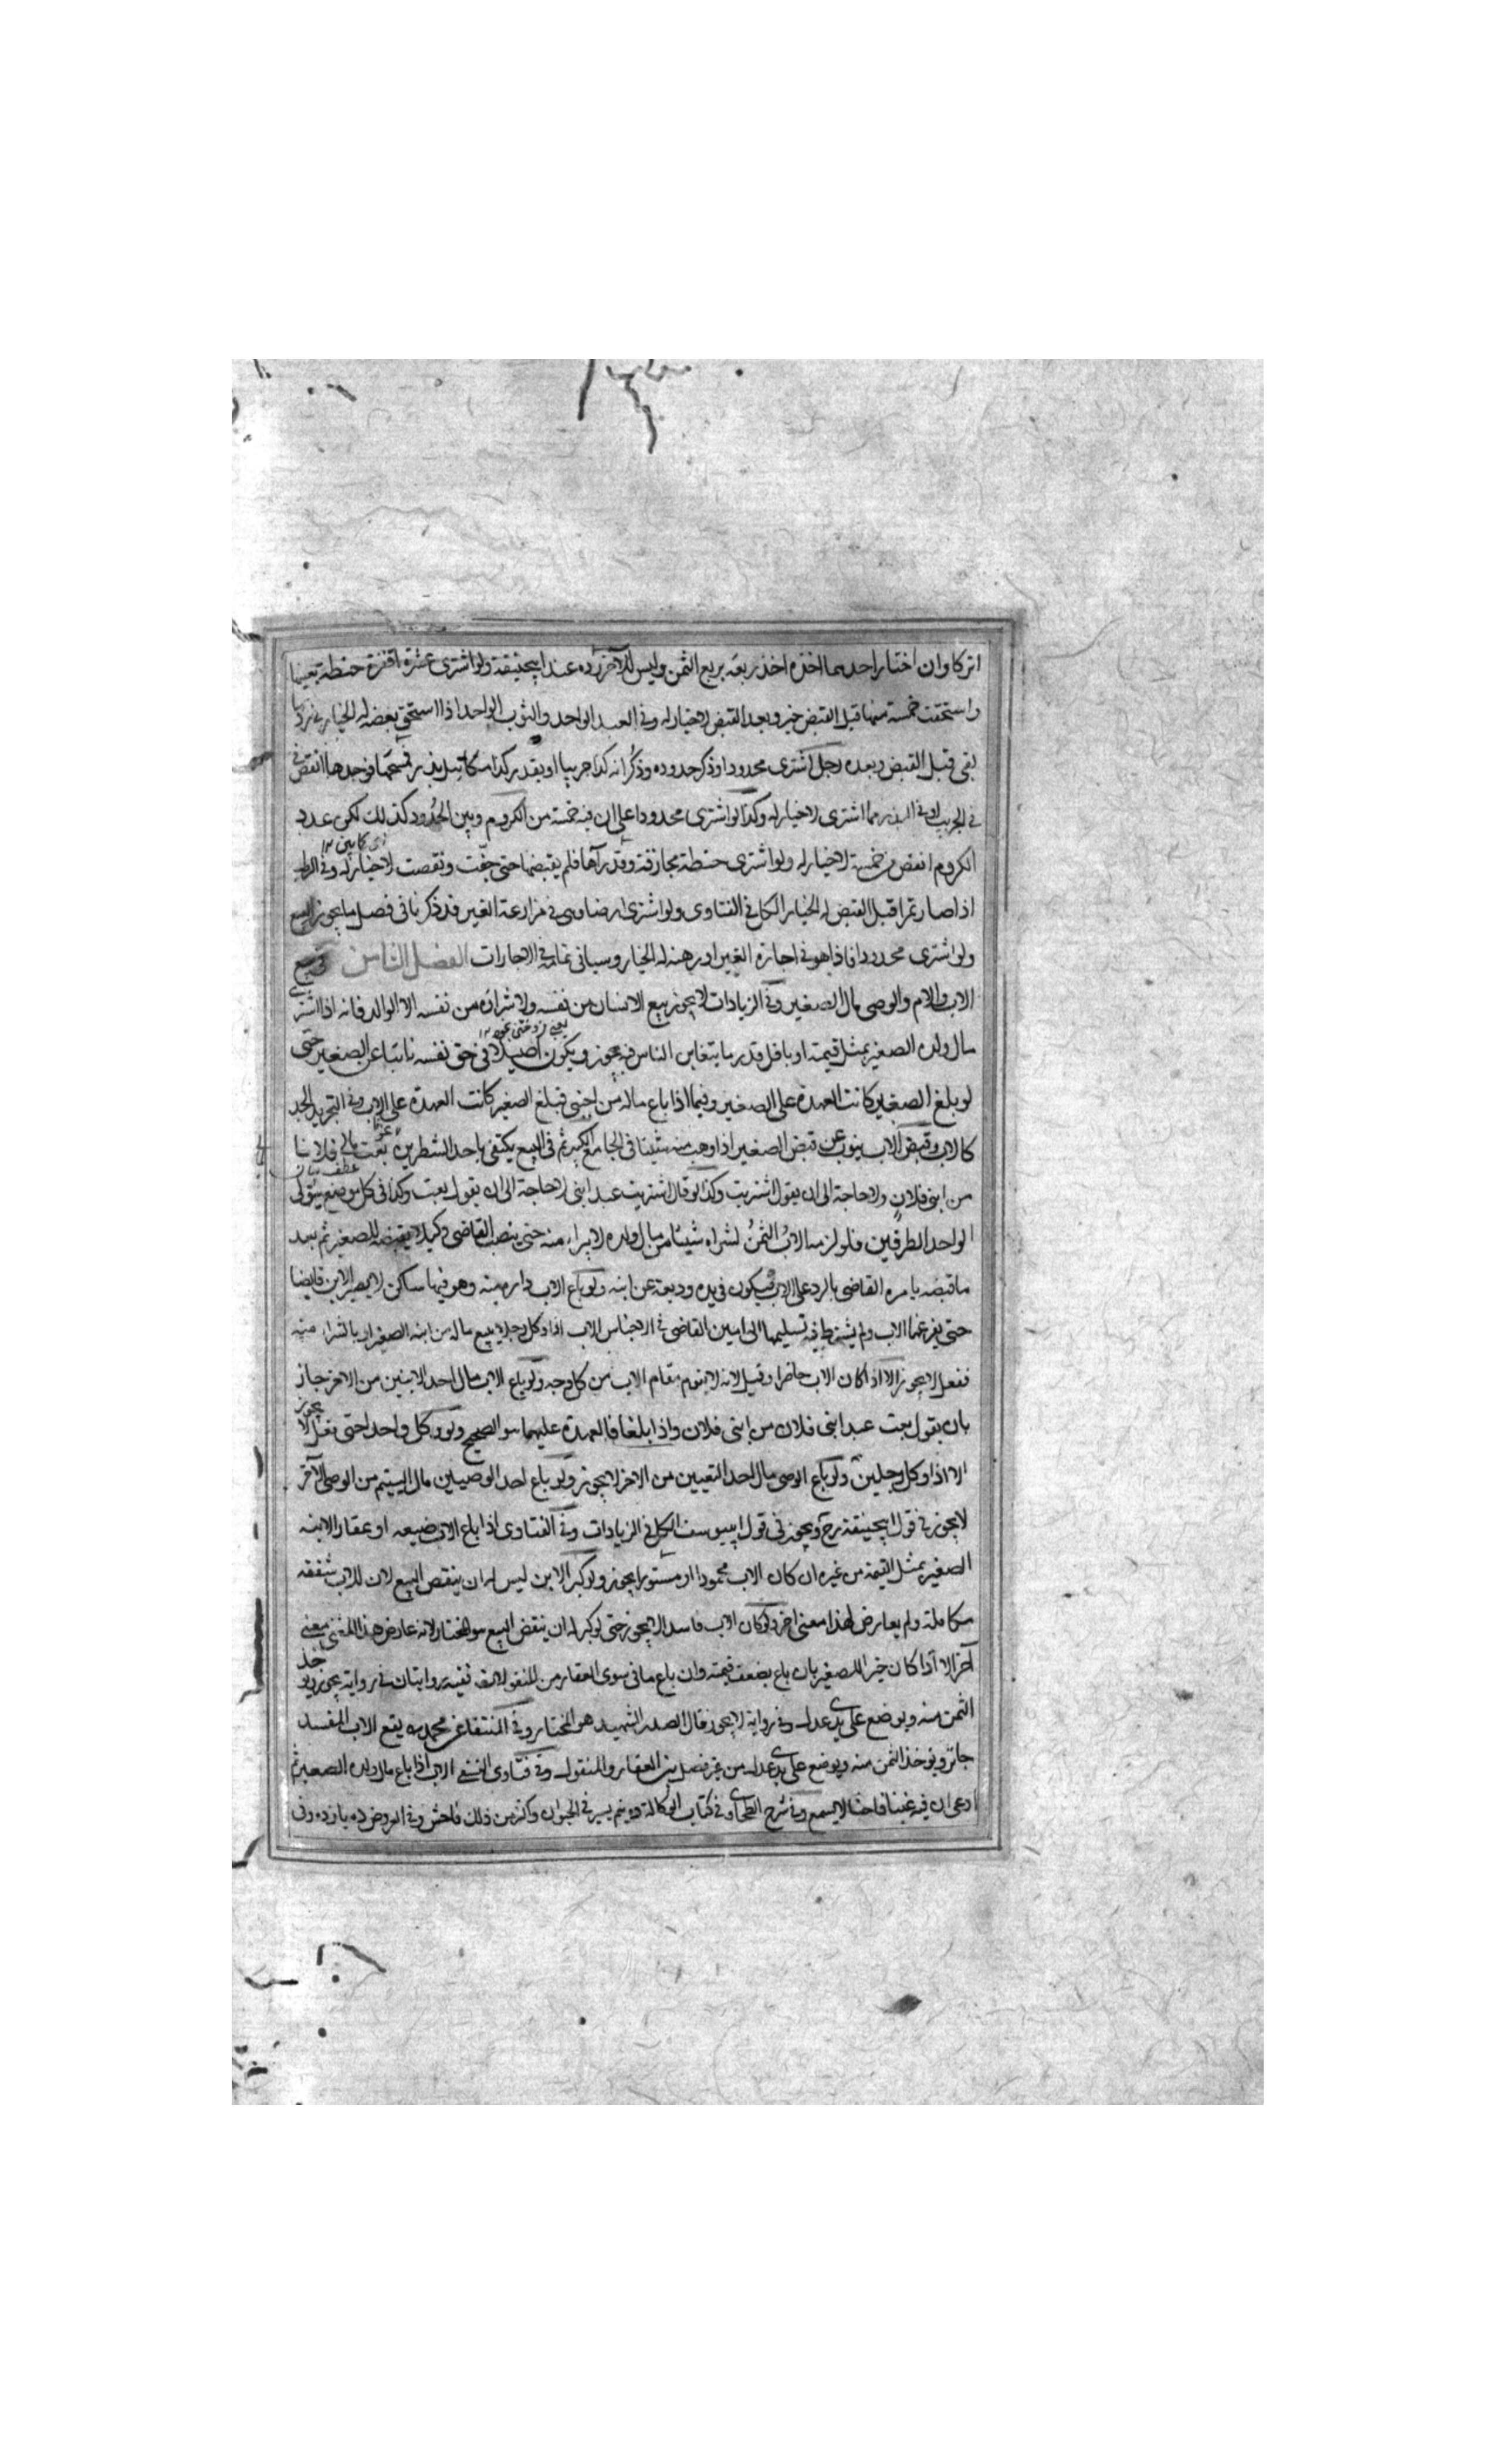 اتركا وان اختار احدهما اخذه اخذ ربعه بربع الثمن وليس للآخر رده عند ابيحنيفة ولو اشترى عشرة اقفزة حنطة بعينها
واستحقت خمسة منها قبل القبض خير وبعد القبض لاخيار له وفى العبد الواحد والثوب الواحد اذا استحق بعضه له الخيار فى رد ما
بقى قبل القبض وبعده رجل اشترى محدودا وذكر حدوده وذكر انه كذا جريبا او بقدر كذا
فى الجريب او فى مما اشترى لاخيار له وكذا لو اشترى محدودا على ان فيه خمسة من الكروم وبين الحدود كذلك لكن عدد
الكروم انقص من خمسة لاخيار له ولو اشترى حنطة مجازفة وقد رآها فلم يقبضها حتى جفت ونقصت لاخيار له وفى الرطب
اذا صار تمرا قبل القبض له الخيار الكل فى الفتاوى ولو اشترى ارضا وهى فى مزارعة الغير قد ذكرنا فى فصل ما يجوز البيع
ولو اشترى محدودا فاذا هو فى اجازة الغير او رهنه له الخيار وسياتى تمامه فى الاجارات الفصل الثامن فى بيع
الاب والام والوصى مال الصغير وفى الزيادات لايجوز بيع الانسان من نفسه ولا شراؤه من نفسه الا الوالد فانه اذا اشترى
مال ولده الصغير بمثل قيمته او باقل قدر ما يتغابن الناس فيه يجوز ويكون اصيلا فى حق نفسه نائبا عن الصغير حتى
لو بلغ الصغير كانت العهدة على الصغير وفيما اذا باع ماله من اجنبى فبلغ الصغير كانت العهدة على الاب وفى التجريد الجد
كالاب وقبض الاب ينوب عن قبض الصغير اذا وهب منه شيئا فى الجامع الكبير ثم فى البيع يكتفى باحد الشطرين بعت مالى فلانا
من ابنى فلان ولا حاجة الى ان يقول اشتريت وكذا لو قال اشتريت عبد ابنى لاحاجة الى ان يقول بعت وكذا فى كل موضع يتولى
الواحد الطرفين فلو لزم الاب الثمن لشراء شيئا من مال ولده لا يبراء منه حتى ينصب القاضى وكيلا يقبضه للصغير ثم بعد
ما قبضه يامره القاضى بالرد على الاب فيكون فى يده وديعة عن ابنه ولو باع الاب داره منه وهو فيها ساكن لا يصير الابن قابضا
حتى يفرغها الاب ولم يشترط فيه تسليمها الى امين القاضى فى الاجناس الاب اذا وكل رجلا ببيع ماله من ابنه الصغير او بالشراء منه
ففعل لايجوز الا اذا كان الاب حاضرا وقيل لانه لايقوم مقام الاب من كل وجه ولو باع الاب مال احد الابنين من الاخر جاز
بان يقول بعت عبد ابنى فلان من ابنى فلان واذا بلغا فالعهدة عليهما هو الصحيح ولو وكل واحدا حتى فعل لا يجوز
الا اذا وكل رجلين ولو باع الوصى مال احد اليتيمين من الاخر لايجوز ولو باع احد الوصيين مال اليتيم من الوصى الآخر
لايجوز فى قول ابيحنيفة رح ويجوز فى قول ابيوسف الكل فى الزيادات وفى الفتاوى اذا باع الاب ضيعة او عقار لابنه
الصغير بمثل القيمة من غيره ان كان الاب محمودا او مستورا يجوز ولو كبر الابن ليس له ان ينقض البيع لان للاب شفقة
كاملة ولم يعارض لهذا معنى اخر ولو كان الاب فاسدا لايجوز حتى لو كبر له ان ينقض البيع هو المختار لانه عارض هذا المعنى معنى
آخر الا اذا كان خيرا للصغير بان باع بضعف قيمته وان باع ما فى سوى العقار من المنقولات ففيه روايتان فى رواية يجوز ويؤخذ
الثمن منه ويوضع على يدى عدل وفى رواية لايجوز قال الصدر الشهيد هو المختار وفى المنتقا عن محمد بيع الاب المفسد
جائز ويوخذ الثمن منه ويوضع على يدى عدل من غير فصل بين العقار والمنقول وفى فتاوى النسفى الاب اذا باع مال ولده الصغير ثم
ادعى ان فيه غبنا فاحشا لايسمع وفى شرح الطحاوى فى كتاب الوكالة ده نيم يسير فى الحيوان واكثر من ذلك فاحش وفى العروض ده يازده وفى